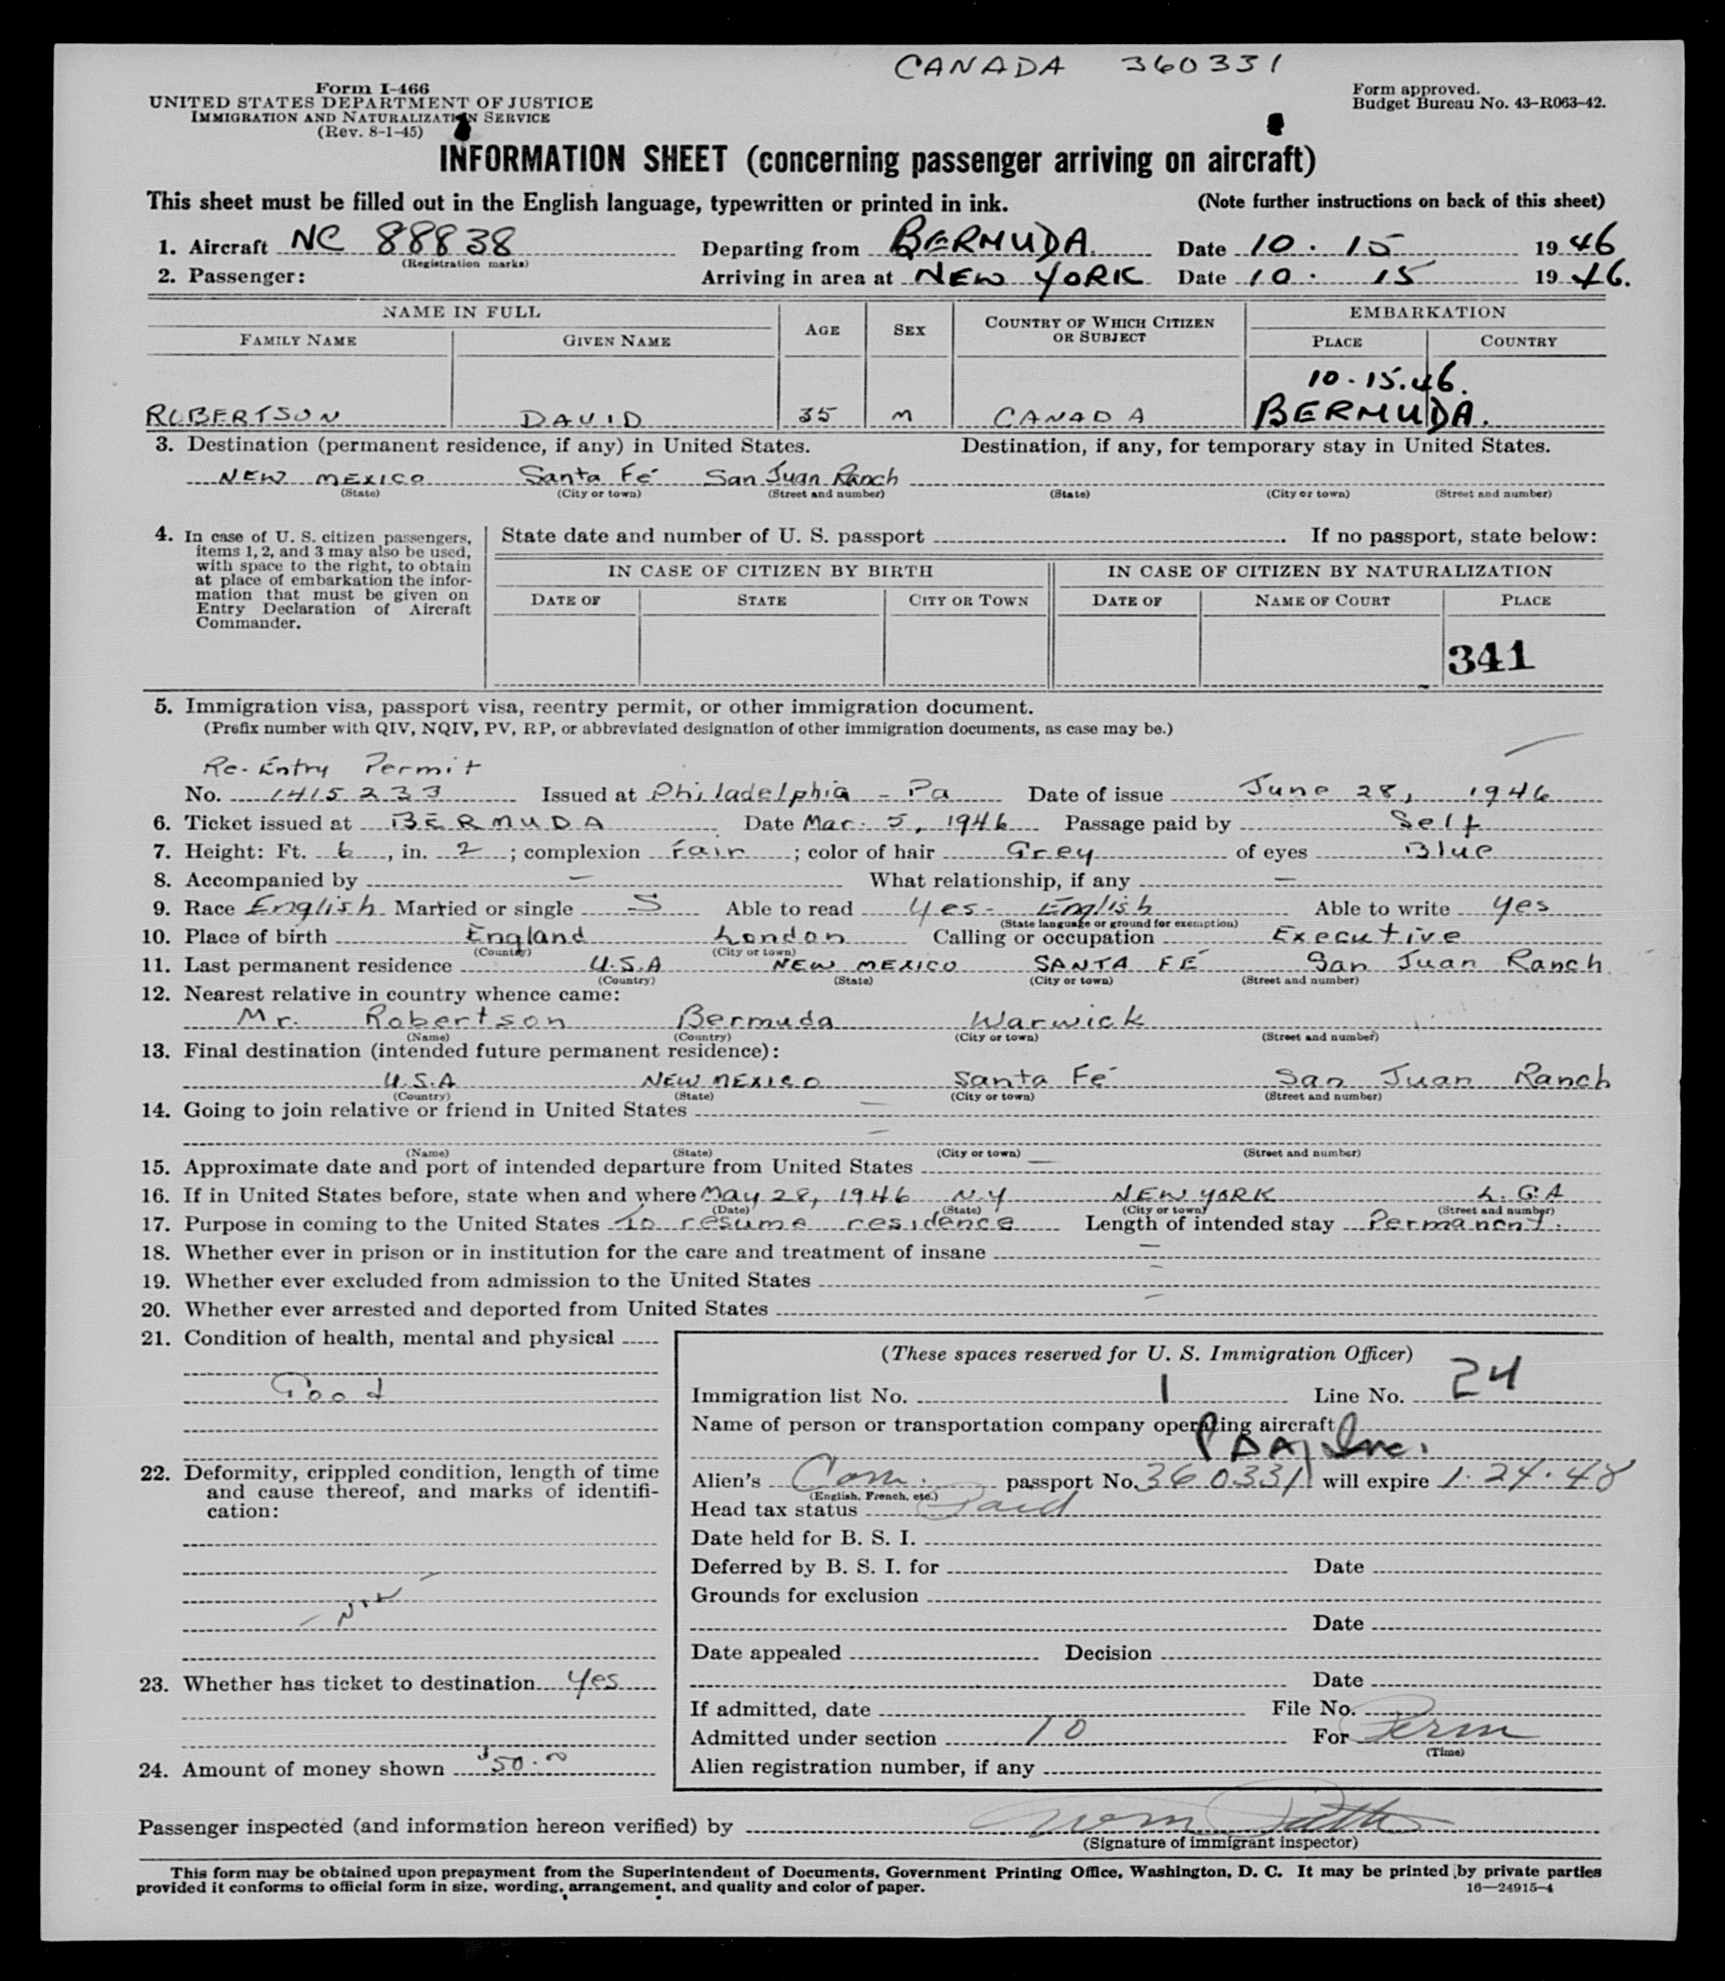 CANADA 360331
Form I-466
UNITED STATES DEPARTMENT OF JUSTICE
IMMIGRATION AND NATURALIZATION SERVICE
(Rev. 8-1-45)
Form approved.
Budget Bureau No. 43-R063-42.
INFORMATION SHEET (concerning passenger arriving on aircraft)
This sheet must be filled out in the English language, typewritten or printed in ink. (Note further instructions on back of this sheet)
1. Aircraft NC 88838 Departing from BERMUDA. Date 10 · 15 1946
(Registration marks)
2. Passenger: Arriving in area at NEW YORK Date 10 · 15 1946.
NAME IN FULL AGE SEX COUNTRY OF WHICH CITIZEN OR SUBJECT EMBARKATION
FAMILY NAME GIVEN NAME PLACE COUNTRY
10-15.46.
ROBERTSON DAVID 35 M CANADA BERMUDA.
3. Destination (permanent residence, if any) in United States. Destination, if any, for temporary stay in United States.
NEW MEXICO Santa Fé San Juan Ranch
(State) (City or town) (Street and number) (State) (City or town) (Street and number)
4. In case of U. S. citizen passengers, items 1, 2, and 3 may also be used, with space to the right, to obtain at place of embarkation the information that must be given on Entry Declaration of Aircraft Commander.
State date and number of U. S. passport . If no passport, state below:
IN CASE OF CITIZEN BY BIRTH IN CASE OF CITIZEN BY NATURALIZATION
DATE OF STATE CITY OR TOWN DATE OF NAME OF COURT PLACE
341
5. Immigration visa, passport visa, reentry permit, or other immigration document.
(Prefix number with QIV, NQIV, PV, RP, or abbreviated designation of other immigration documents, as case may be.)
Re-Entry Permit
No. 1415233 Issued at Philadelphia - Pa Date of issue June 28, 1946
6. Ticket issued at BERMUDA Date Mar. 5, 1946 Passage paid by Self
7. Height: Ft. 6, in. 2; complexion Fair; color of hair Grey of eyes Blue
8. Accompanied by — What relationship, if any —
9. Race English Married or single S Able to read Yes - English Able to write Yes
(State language or ground for exemption)
10. Place of birth England London Calling or occupation Executive
(Country) (City or town)
11. Last permanent residence U.S.A NEW MEXICO SANTA FÉ San Juan Ranch
(Country) (State) (City or town) (Street and number)
12. Nearest relative in country whence came:
Mr. Robertson Bermuda Warwick
(Name) (Country) (City or town) (Street and number)
13. Final destination (intended future permanent residence):
U.S.A NEW MEXICO Santa Fé San Juan Ranch
(Country) (State) (City or town) (Street and number)
14. Going to join relative or friend in United States —
—
(Name) (State) (City or town) (Street and number)
15. Approximate date and port of intended departure from United States —
16. If in United States before, state when and where May 28, 1946 N.Y NEW YORK L.G.A
(Date) (State) (City or town) (Street and number)
17. Purpose in coming to the United States To resume residence Length of intended stay Permanent.
18. Whether ever in prison or in institution for the care and treatment of insane —
19. Whether ever excluded from admission to the United States —
20. Whether ever arrested and deported from United States —
21. Condition of health, mental and physical
Good
22. Deformity, crippled condition, length of time and cause thereof, and marks of identification:
23. Whether has ticket to destination Yes
24. Amount of money shown $50.00
(These spaces reserved for U. S. Immigration Officer)
Immigration list No. 1 Line No. 24
Name of person or transportation company operating aircraft
PAA, Inc.
Alien's Can. passport No. 360331 will expire 1-24-48
(English, French, etc.)
Head tax status Paid
Date held for B. S. I.
Deferred by B. S. I. for Date
Grounds for exclusion
Date
Date appealed Decision
Date
If admitted, date File No.
Admitted under section 10 For Perm
(Time)
Alien registration number, if any
Passenger inspected (and information hereon verified) by
(Signature of immigrant inspector)
This form may be obtained upon prepayment from the Superintendent of Documents, Government Printing Office, Washington, D. C. It may be printed by private parties
provided it conforms to official form in size, wording, arrangement, and quality and color of paper. 16—24915-4